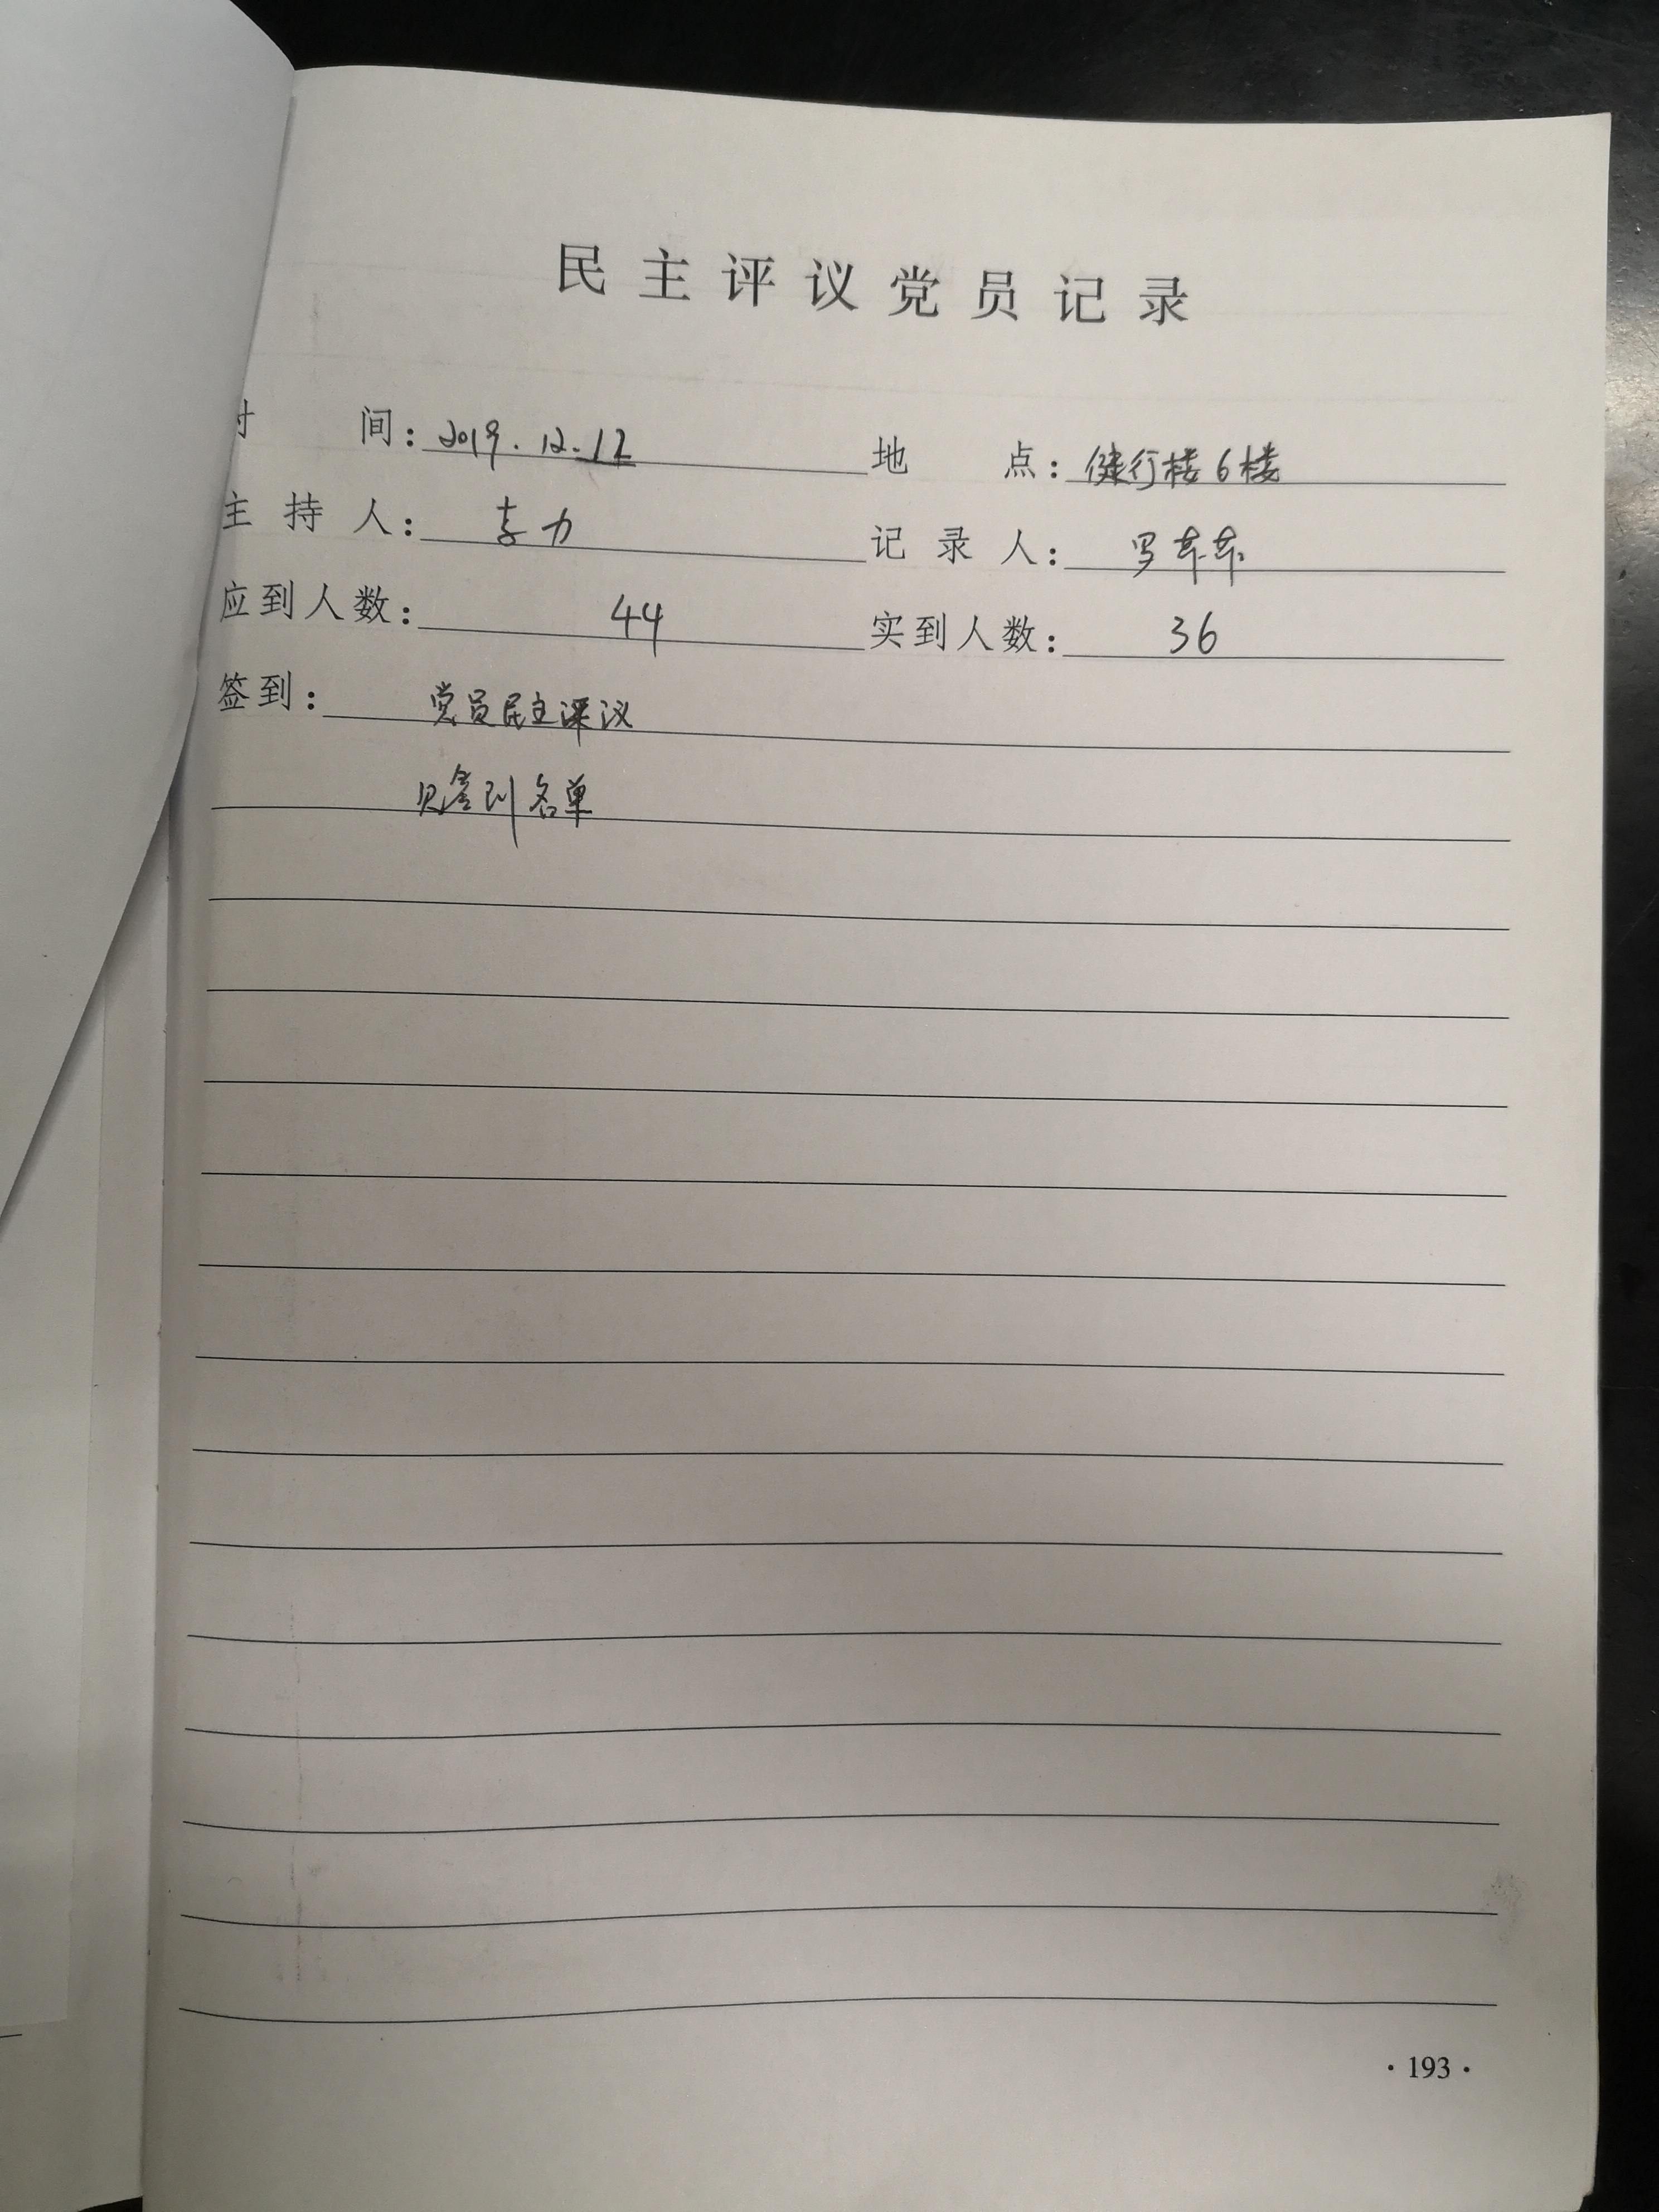 民主评议党员记录
时 间：2019.12.12 地 点：健行楼6楼
主持人：李力 记录人：罗
应到人数：44 实到人数：36
签到：党员民主评议
见签到名单
·193·